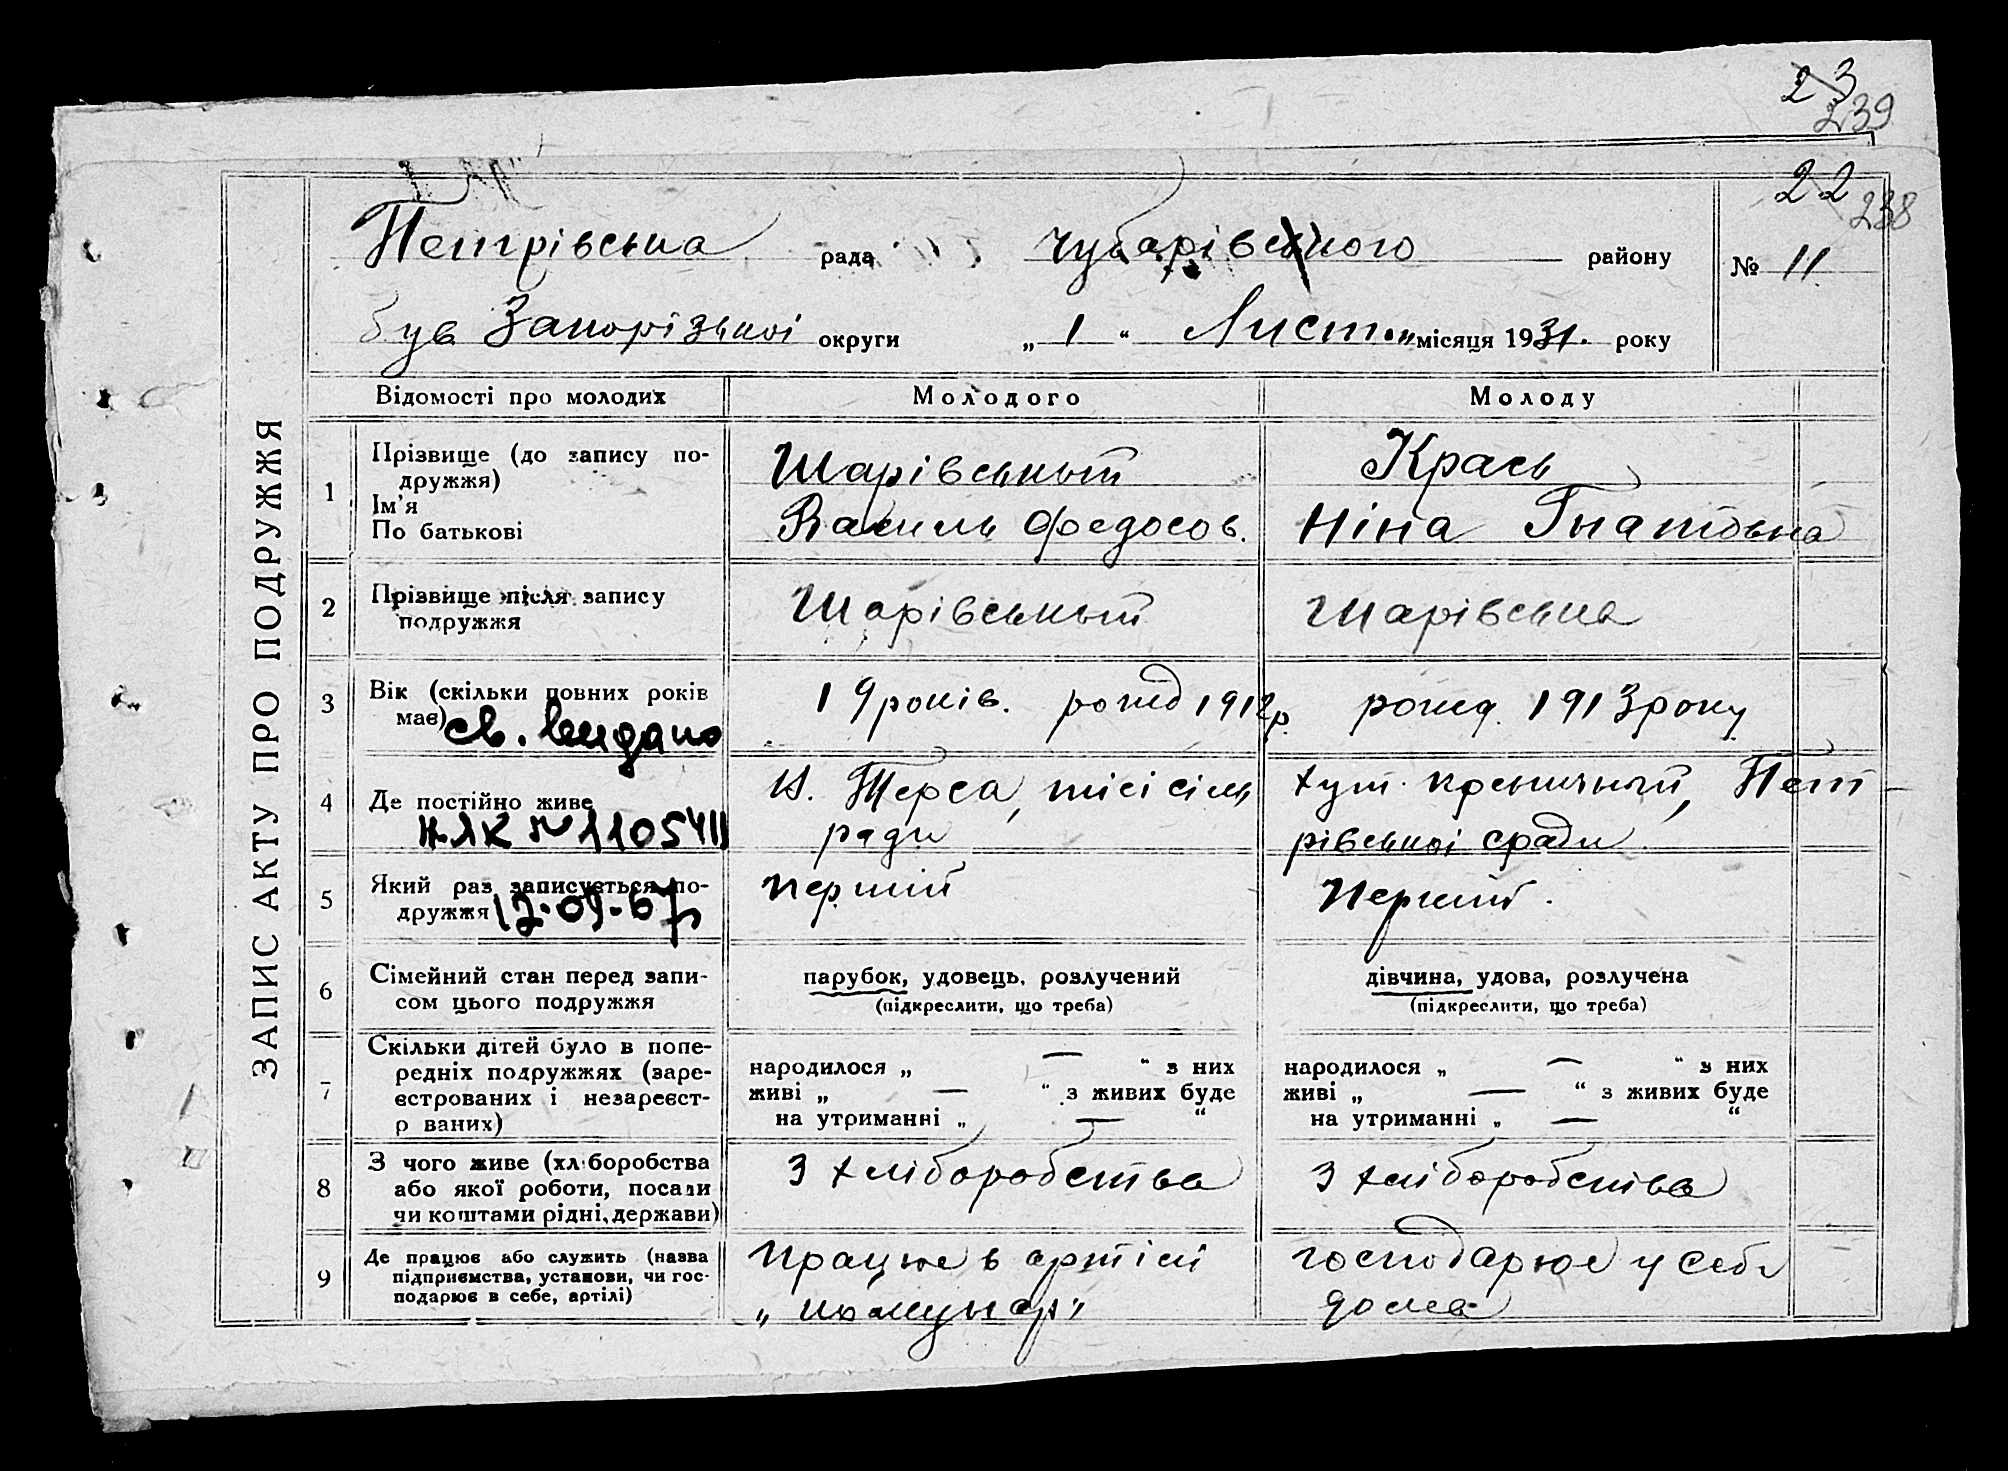 23
239
22
238
Петрівська рада Чубарівського району № 11
був Запорізької округи „ 1 “ Лист. місяця 1931. року
ЗАПИС АКТУ ПРО ПОДРУЖЖЯ
Відомості про молодих Молодого Молоду
1 Прізвище (до запису по-
дружжя)
Ім'я
По батькові
Шарівський
Василь Федосов.
Крась
Ніна Гнатовна
2 Прізвище після запису
подружжя
Шарівський
Шарівська
3 Вік (скільки повних років
має)
св. выдано
19 років. рожд 1912 р.
рожд. 1913 року
4 Де постійно живе
Н. Терса, тієі сіль
ради
хут. Кремычный, Пет-
рівської сради
5 Який раз записується по-
дружжя
12.09.67
перший
Перший.
6 Сімейний стан перед запи-
сом цього подружжя
парубок, удовець, розлучений
(підкреслити, що треба)
дівчина, удова, розлучена
(підкреслити, що треба)
7 Скільки дітей було в попе-
редніх подружжях (заре-
єстрованих і незареєст-
р ваних)
народилося „ — “ з них
живі „ — “ з живих буде
на утриманні „ — “
народилося „ — “ з них
живі „ — “ з живих буде
на утриманні „ — “
8 З чого живе (хліборобства
або якої роботи, посади
чи коштами рідні, держави)
З хліборобства
З хліборобства
9 Де працює або служить (назва
підприємства, установи, чи гос-
подарює в себе, артілі)
працює в артілі
„комунар"
господарює у себе
дома